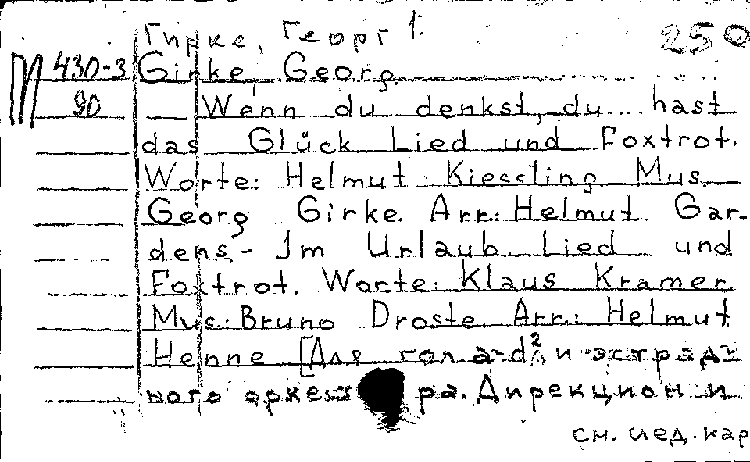 Гирке, Георг 1.
250
М 430-3 Girke, Georg.
90 Wenn du denkst, du hast
das Glück Lied und Foxtrot.
Worte: Helmut Kiessling Mus.
Georg Girke. Arr.: Helmut Gar-
dens,- Im Urlaub. Lied und
Foxtrot. Worte: Klaus Kramer
Mus.: Bruno Droste Arr.: Helmut
Henne [Для гол. a-d² и эстрад-
ного оркестра. Дирекцион и
см. след. кар